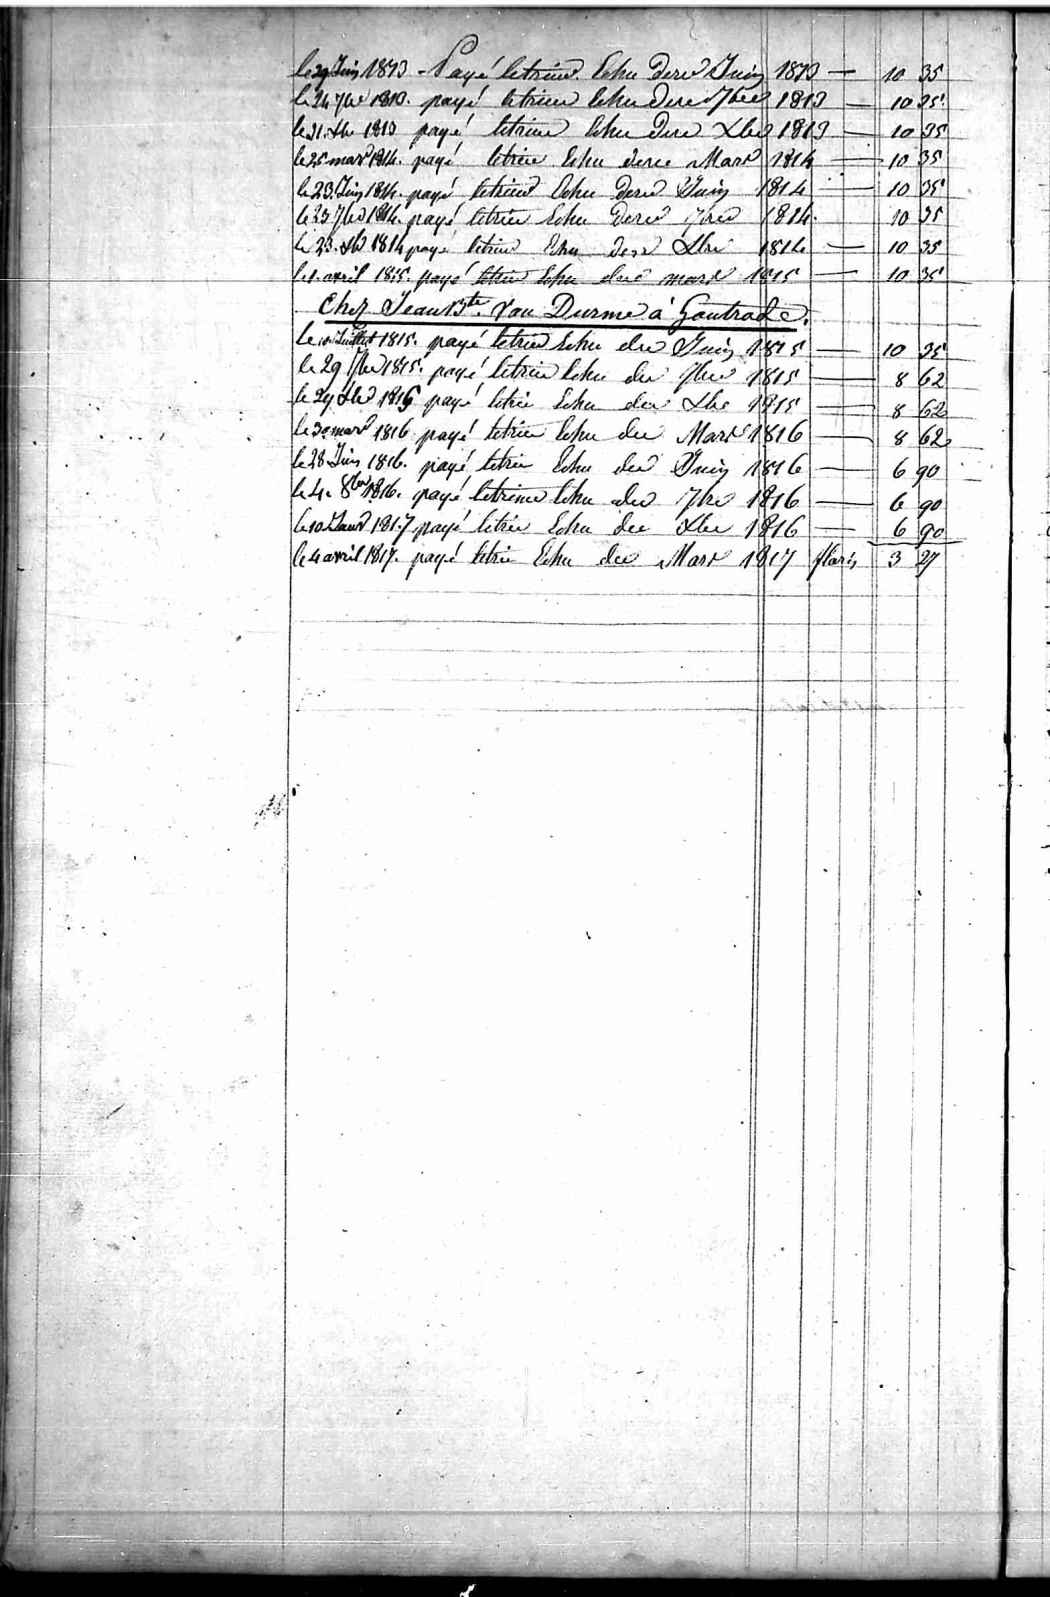 le 29 Juin 1813 - Payé letrim. Echu dere Juin 1813 — 10 35
le 24 7bre 1813. payé letrim Echu dere 7bre 1813 — 10 35
le 31. Xbre 1813 payé letrim Echu dere Xbre 1813 — 10 35
le 25 mars 1814. payé letrim Echu dere Mars 1814 — 10 35
le 23. Juin 1814. payé letrim Echu dere Juin 1814 — 10 35
le 23 7bre 1814. payé letrim Echu dere 7bre 1814. 10 35
le 23. Xbre 1814 payé letrim Echu dere Xbre 1814 — 10 35
le 1. avril 1815. payé letrim Echu dere mars 1815 — 10 35
Chez Jean Bte. Van Durme à Gontrode.
le Juillet 1815. payé letrim Echu de Juin 1815 — 10 35
le 29 7bre 1815. payé letrim Echu de 7bre 1815 — 8 62
le 29 Xbre 1815 payé letrim Echu de Xbre 1815 — 8 62
le 30 mars 1816 payé letrim Echu de Mars 1816 — 8 62
le 28 Juin 1816. payé letrim Echu de Juin 1816 — 6 90
le 4. 8bre 1816. payé letrime Echu de 7bre 1816 — 6 90
le 10 Janv 1817 payé letrim Echu de Xbre 1816 — 6 90
le 4 avril 1817. payé letrim Echu de Mars 1817 florins 3 27